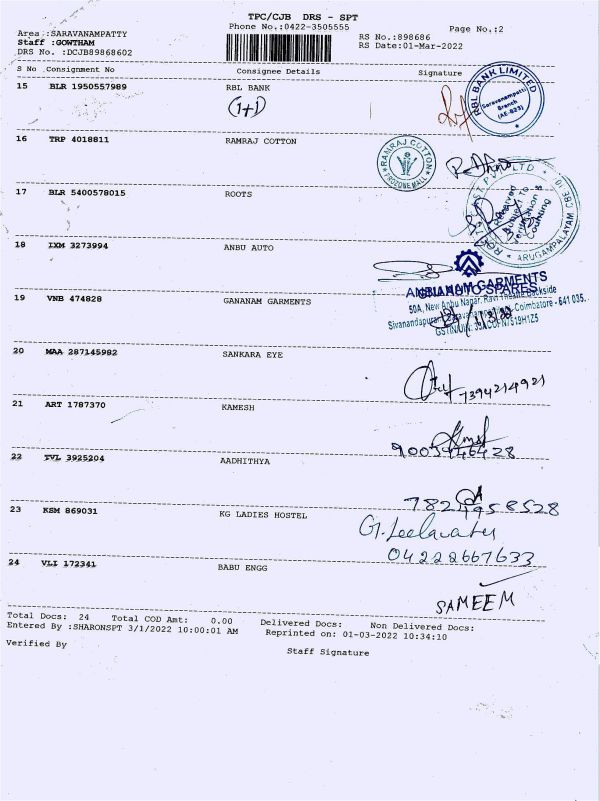 TPC/CJB DRS - SPT
Area :SARAVANAMPATTY Phone No.:0422-3505555 Page No.:2
Staff :GOWTHAM RS No.:898686
DRS No. :DCJB89868602 RS Date:01-Mar-2022
S No Consignment No Consignee Details Signature
15 BLR 1950557989 RBL BANK
(1+1)
RBL BANK LIMITED
Saravanampatti
Branch
(AE-823)
16 TRP 4018811 RAMRAJ COTTON
RAMRAJ COTTON
17 BLR 5400578015 ROOTS
Received
Subject To
Verification &
Counting
ARUGAMPALAYAM CBE 10
18 IXM 3273994 ANBU AUTO
19 VNB 474828 GANANAM GARMENTS
50A, New Anbu Nagar,
Coimbatore - 641 035.
20 MAA 287145982 SANKARA EYE
7394214921
21 ART 1787370 KAMESH
22 TVL 3925204 AADHITHYA
23 KSM 869031 KG LADIES HOSTEL
G. Leelavathy
04222667633
24 VLI 172341 BABU ENGG
SAMEEM
Total Docs: 24 Total COD Amt: 0.00 Delivered Docs: Non Delivered Docs:
Entered By :SHARONSPT 3/1/2022 10:00:01 AM Reprinted on: 01-03-2022 10:34:10
Verified By Staff Signature